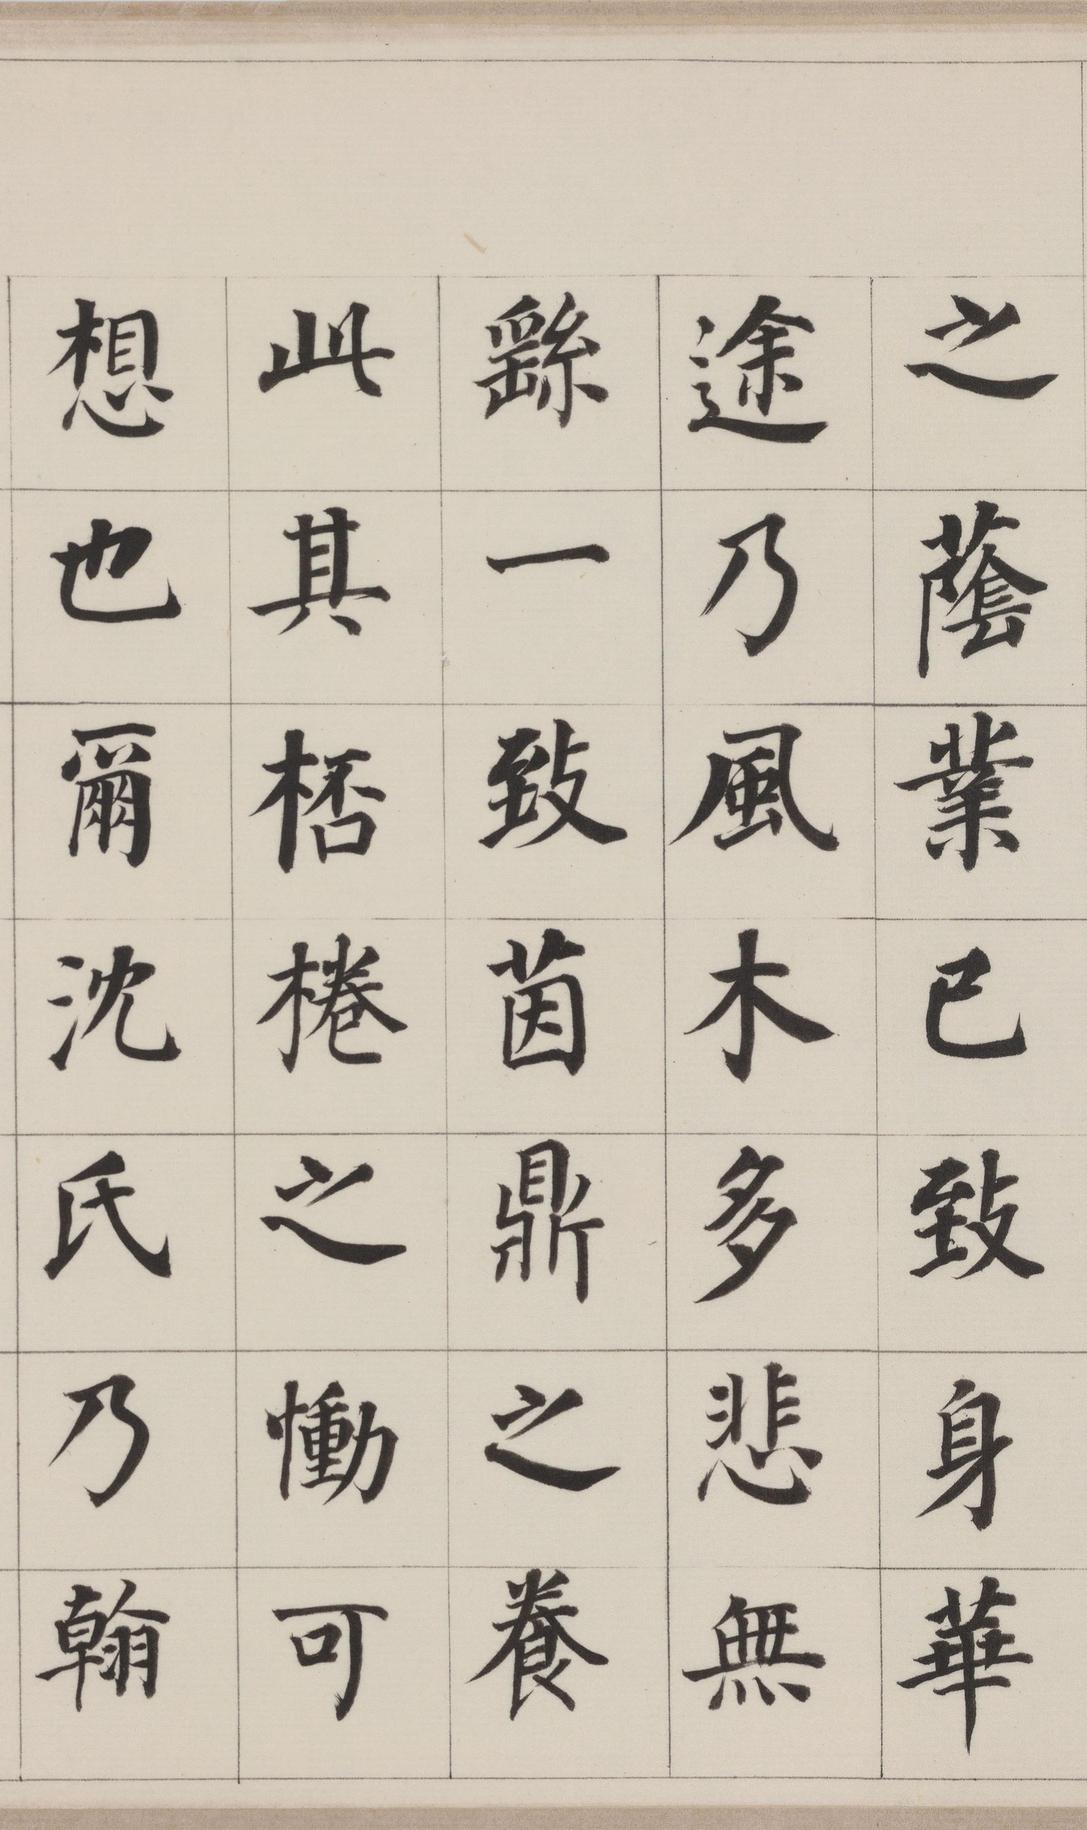 之蔭業已致身華
途乃風木多悲無
繇一致茵鼎之養
此其桮棬之慟可
想也爾沈氏乃翰